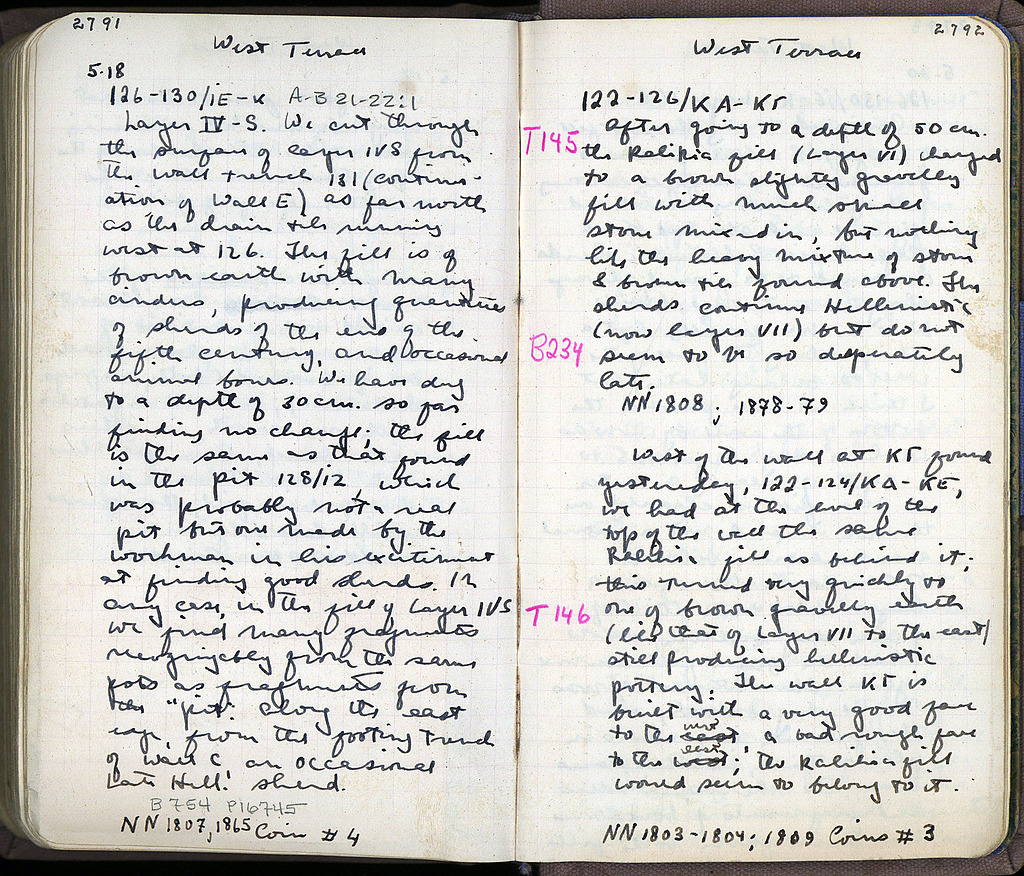 2791
West Terrace
5.18
126-130/IE-K A-B 21-22:1
Layer IV-S. We cut through
the surface of layer IVS from
the wall trench 131 (continu-
ation of Wall E) as far north
as the drain tile running
west at 126. The fill is of
brown earth with many
cinders, producing quantities
of sherds of the end of the
fifth century, and occasional
animal bones. We have dug
to a depth of 30 cm. so far
finding no change; the fill
is the same as that found
in the pit 128/12, which
was probably not a real
pit but one made by the
workman in his excitement
at finding good sherds. In
any case, in the fill of Layer IVS
we find many fragments
recognizably from the same
pots as fragments from
the "pit". Along the east
edge, from the footing trench
of wall C, an occasional
Late Hell. sherd.
B 754 P16745
NN 1807, 1865 Coin # 4
2792
West Terrace
122-126/KA-KΓ
After going to a depth of 50 cm.
T145
the Ralikia fill (Layer VI) changed
to a brown slightly gravelly
fill with much small
stone mixed in, but nothing
like the heavy mixture of stone
& brown tile found above. The
sherds continue Hellenistic
(now layer VII) but do not
B234
seem to be so desperately
late.
NN 1808; 1878-79
West of the wall at KΓ found
yesterday, 122-124/KA-KE,
we had at the level of the
top of the wall the same
Ralikia fill as behind it;
this turned very quickly to
T 146
one of brown gravelly earth
(like that of Layer VII to the east)
still producing hellenistic
pottery. The wall KΓ is
built with a very good face
to the east west, a bad rough face
to the west east; the Ralikia fill
would seem to belong to it.
NN 1803-1804; 1809 Coins # 3